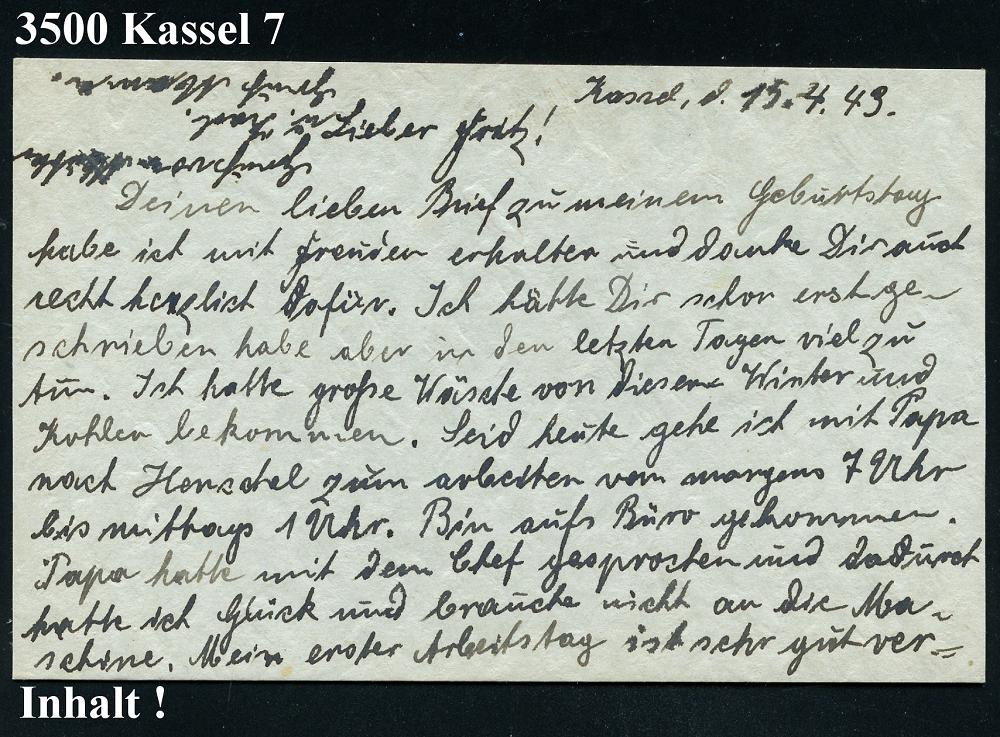 3500 Kassel 7
Kassel, d. 15.4.43.
Lieber Fritz!
Deinen lieben Brief zu meinem Geburtstag
habe ich mit Freuden erhalten und danke Dir auch
recht herzlich dafür. Ich hätte Dir schon erst ge-
schrieben habe aber in den letzten Tagen viel zu
tun. Ich hatte große Wäsche von diesem Winter und
Kohlen bekommen. Seid heute gehe ich mit Papa
nach Henschel zum arbeiten von morgens 7 Uhr
bis mittags 1 Uhr. Bin aufs Büro gekommen.
Papa hatte mit dem Chef gesprochen und dadurch
hatte ich Glück und brauche nicht an die Ma-
schine. Mein erster Arbeitstag ist sehr gut ver-
Inhalt !